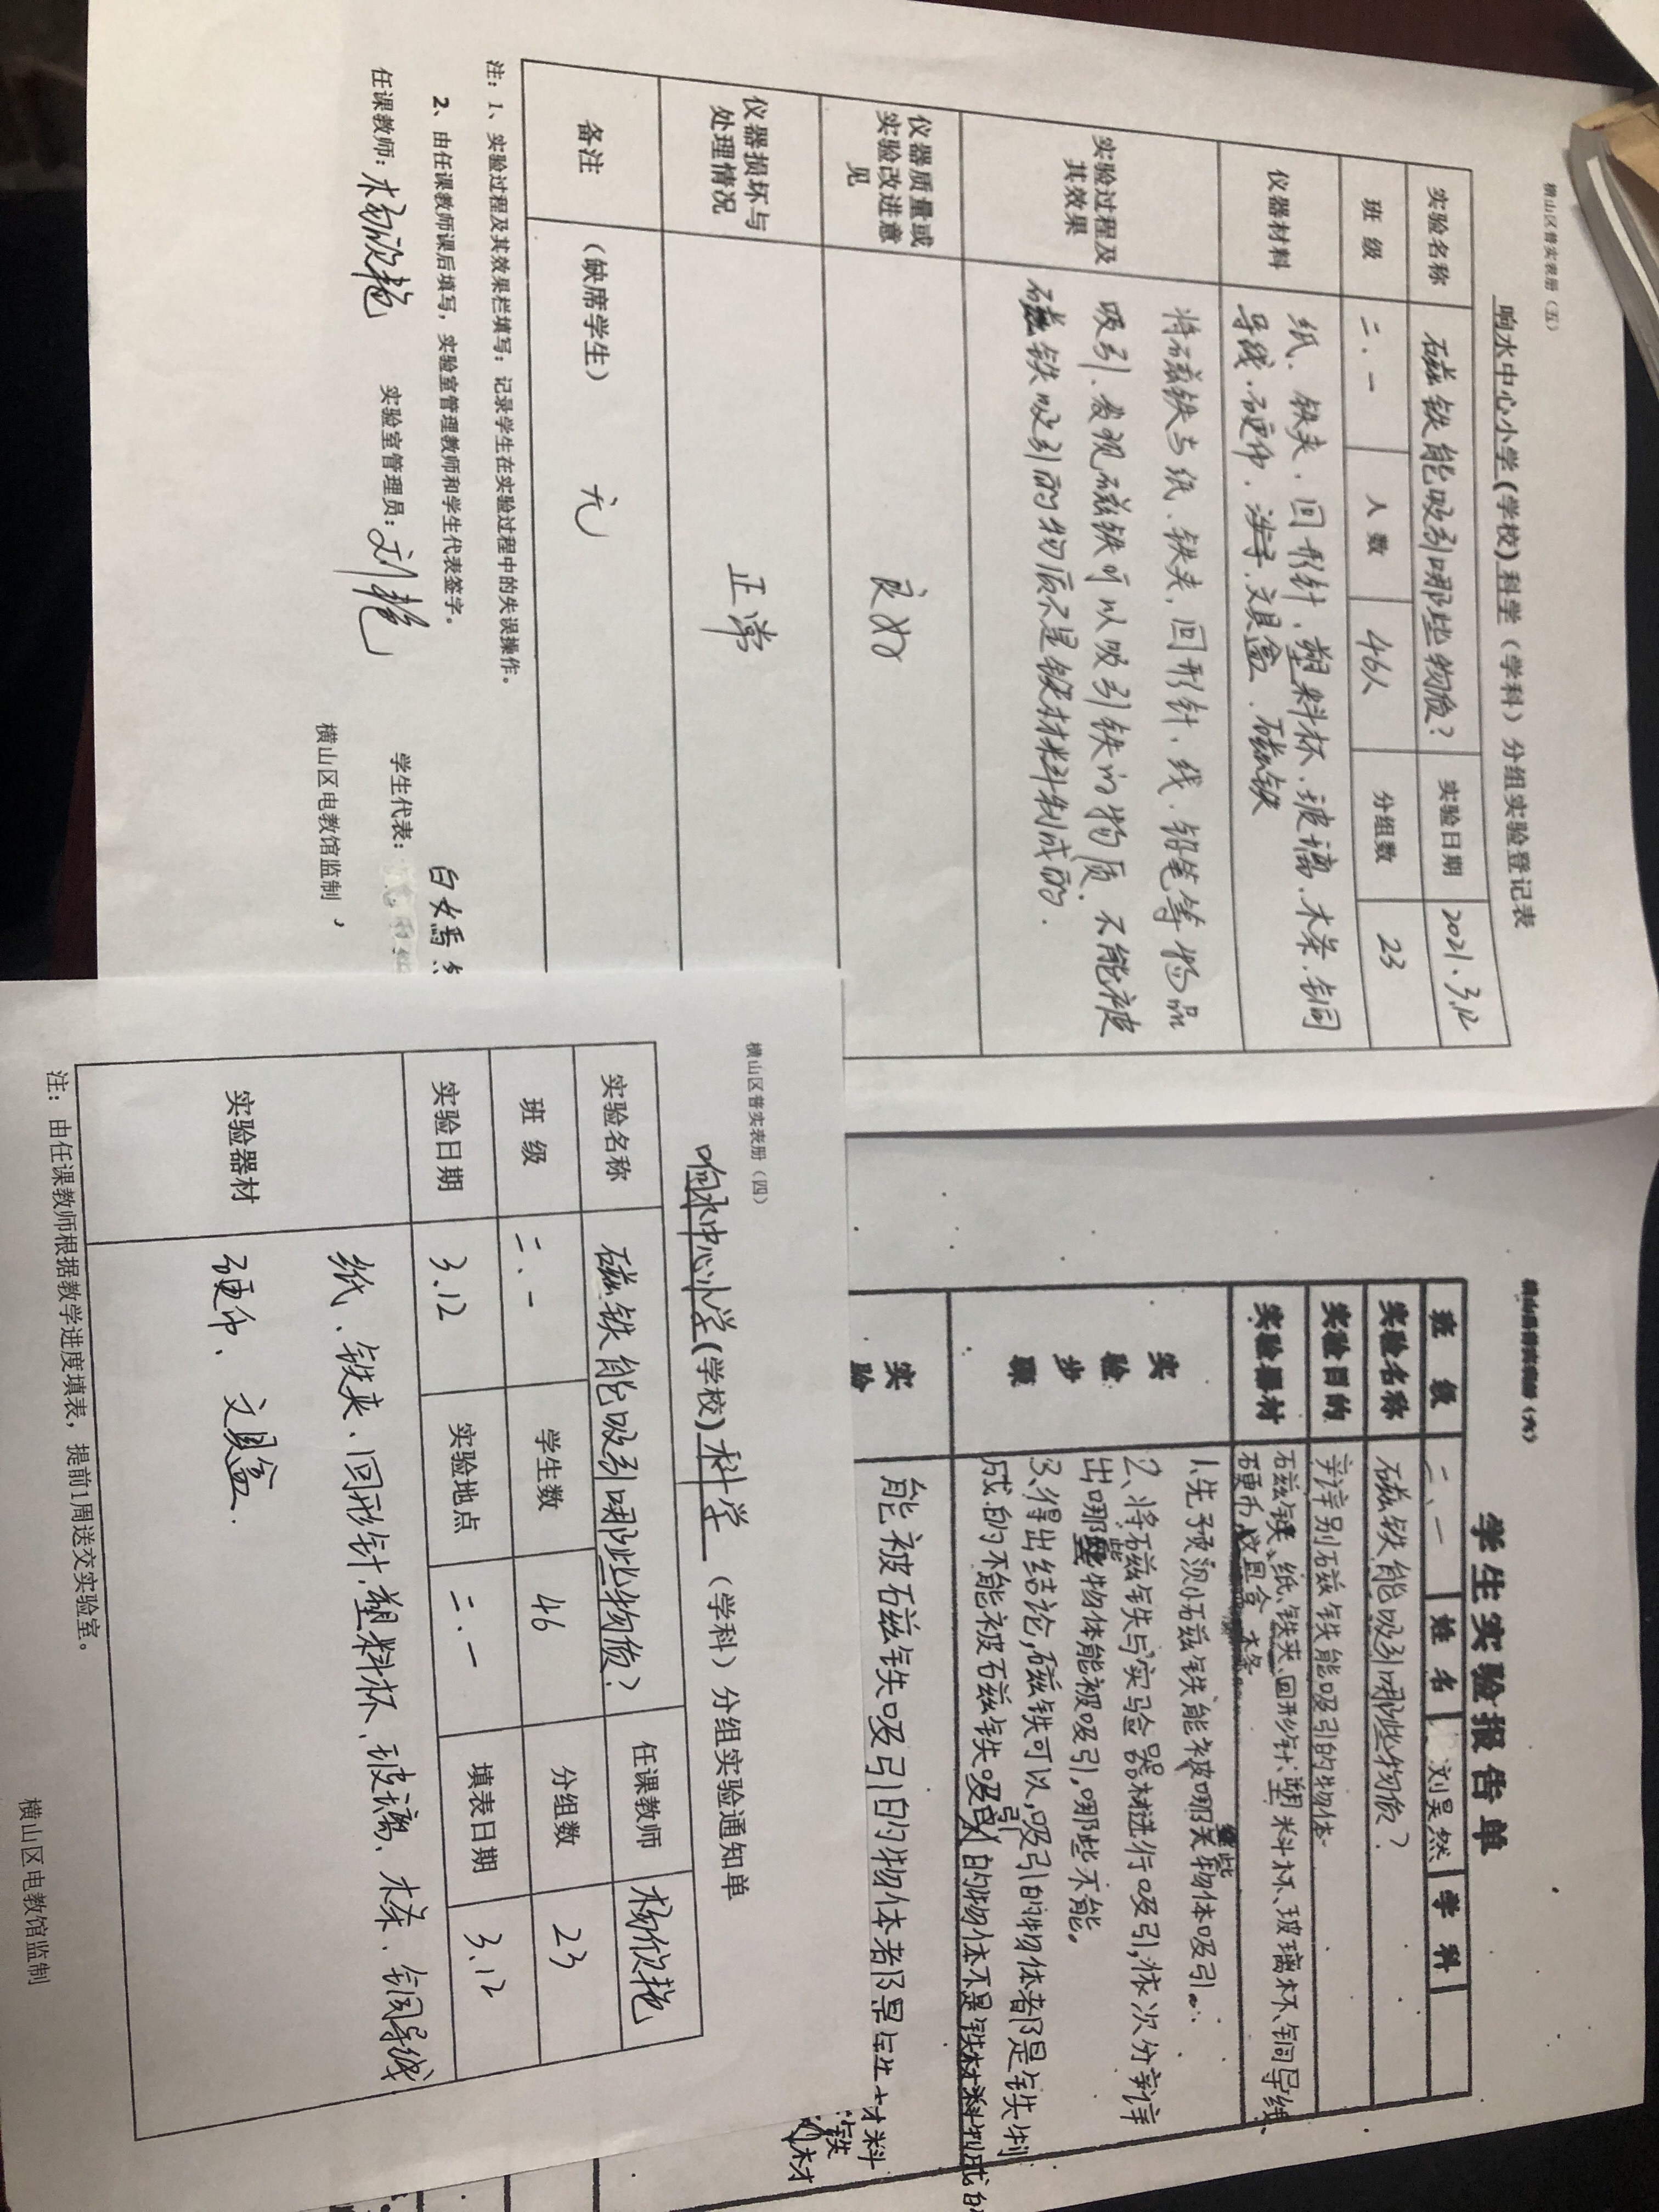 横山区普实表册（五）
响水中心小学(学校)科学（学科）分组实验登记表
实验名称 磁铁能吸引哪些物质？ 实验日期 2021.3.12
班 级 二.一 人 数 46人 分组数 23
仪器材料 纸、铁夹、回形针、塑料杯、玻璃、木条、铜
导线、硬币、文具盒、磁铁
实验过程及
其效果
将磁铁与纸、铁夹、回形针、线、铅笔等物品
吸引、发现磁铁可以吸引铁的物质，不能被
磁铁吸引的物质不是铁材料制成的.
仪器质量或
实验改进意
见
良好
仪器损坏与
处理情况
正常
备注 （缺席学生） 无
注：1、实验过程及其效果栏填写：记录学生在实验过程中的失误操作。
2、由任课教师课后填写，实验室管理教师和学生代表签字。
任课教师：杨欣艳 实验室管理员：刘艳 学生代表：
横山区电教馆监制
横山区普实表册（四）
响水中心小学(学校)科学（学科）分组实验通知单
实验名称 磁铁能吸引哪些物质？ 任课教师 杨欣艳
班 级 二.一 学生数 46 分组数 23
实验日期 3.12 实验地点 二.一 填表日期 3.12
实验器材 纸、铁夹、回形针、塑料杯、玻璃、木条、铜导线
硬币、文具盒.
注：由任课教师根据教学进度填表，提前1周送交实验室。
横山区电教馆监制
学生实验报告单
班 级 二、一 姓 名 刘昊然 学 科
实验名称 磁铁能吸引哪些物质？
实验目的 辨别磁铁能吸引的物体
实验器材 磁铁、纸、铁夹、回形针、塑料杯、玻璃杯、铜导线、
硬币、文具盒、木条
实验步骤
1、先预测磁铁能被哪些物体吸引。
2、将磁铁与实验器材进行吸引，依次分辨
出哪些物体能被吸引，哪些不能。
3、得出结论，磁铁可以吸引的物体都是铁制
成的不能被磁铁吸引的物体不是铁材料制成的
实验
能被磁铁吸引的物体都是铁材料